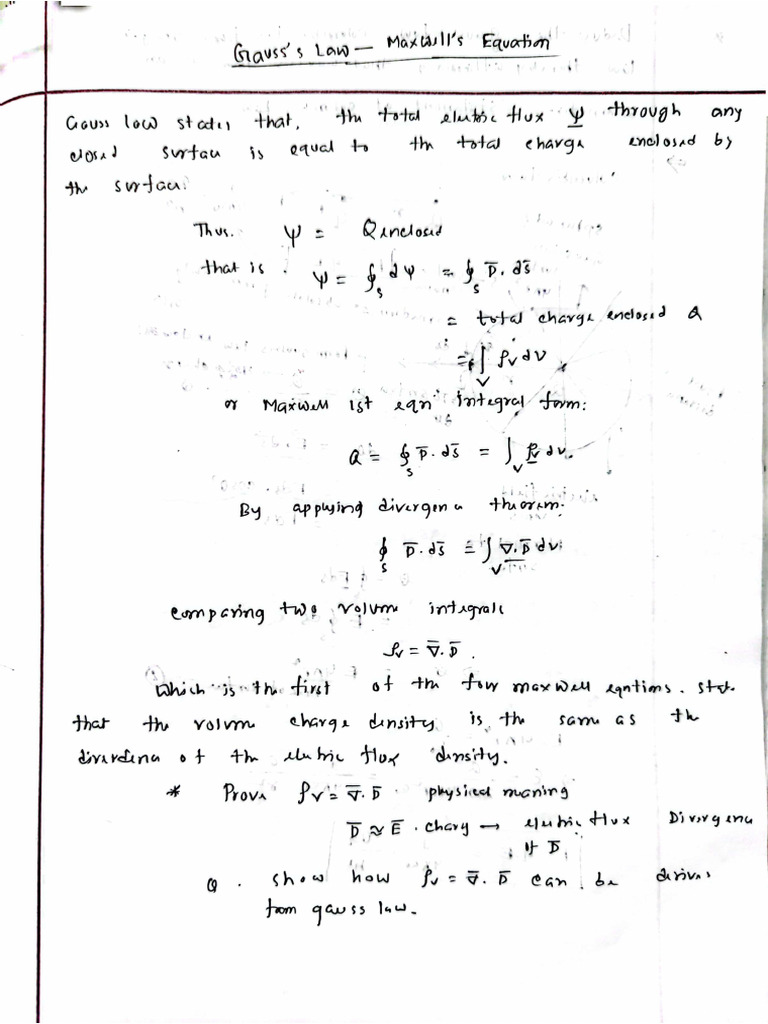 Gauss's Law — Maxwell's Equation
Gauss law states that, the total electric flux Ψ through any
closed surface is equal to the total charge enclosed by
the surface.
Thus. Ψ = Qenclosed
that is. Ψ = ∮_S dΨ = ∮_S D̄. dS̄
= total charge enclosed Q
= ∫_V ρ_v dv
or Maxwell ist eqn integral form:
Q = ∮_S D̄. dS̄ = ∫_V ρ_v dv.
By applying divergence theorem.
∮_S D̄. dS̄ = ∫_V ∇. D̄ dv
comparing two volume integrals
ρ_v = ∇̄. D̄.
Which is the first of the four maxwell eqntions. state
that the volume charge density is the same as the
divergence of the electric flux density.
* Prove ρ_v = ∇̄. D̄ physical meaning
D̄ ≈ Ē. charg → electric flux Divergence
of D̄
Q. show how ρ_v = ∇̄. D̄ can be derives
from gauss law.